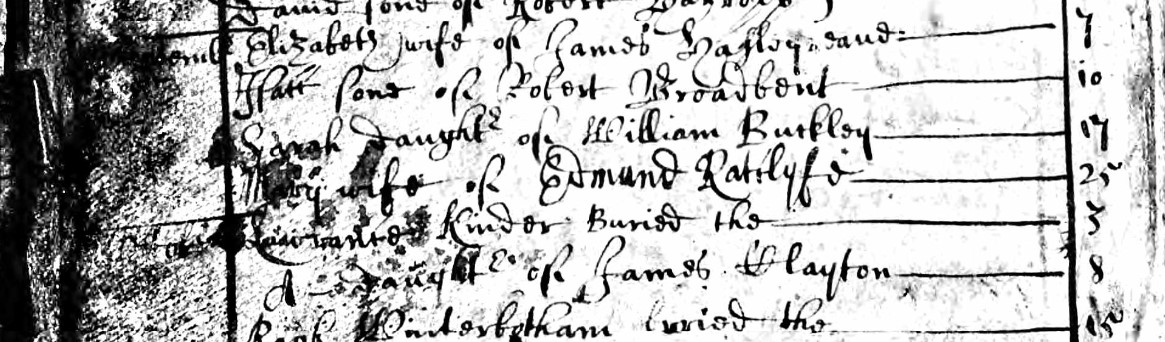 sone of Robert
Elizabeth wife of James 7
Isacc sone of Robert Broadbent 10
Sarah daught.r of William Buckley 17
Mary wife of Edmund Ratclyfe 25
Kinder Buried the 3
A daught.r of James Clayton 8
Winterbotham buried the 15